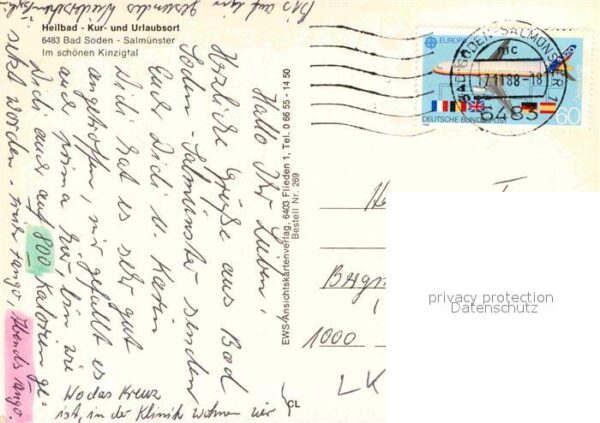 Heilbad - Kur- und Urlaubsort
6483 Bad Soden - Salmünster
Im schönen Kinzigtal
Hallo Ihr Lieben,
Herzliche Grüße aus Bad
Soden-Salmünster senden
Euch Didi u. Karin
Didi hat es sehr gut
angetroffen, mir gefällt es
auch prima hier, bin wie
Didi auch auf 800 Kalorien ge-
setzt worden.
Fango, Abends Tango.
Bis auf
Wo das Kreuz
ist, in der Klinik wohnen wir
EWS/Ansichtskartenverlag, 6403 Flieden 1, Tel. 0 66 55 - 14 50
Bestell Nr. 269
CL
EUROPA
DEUTSCHE BUNDESPOST
60
BAD SODEN-SALMÜNSTER
mc
17.11.88-18
6483
1000
LK
privacy protection
Datenschutz